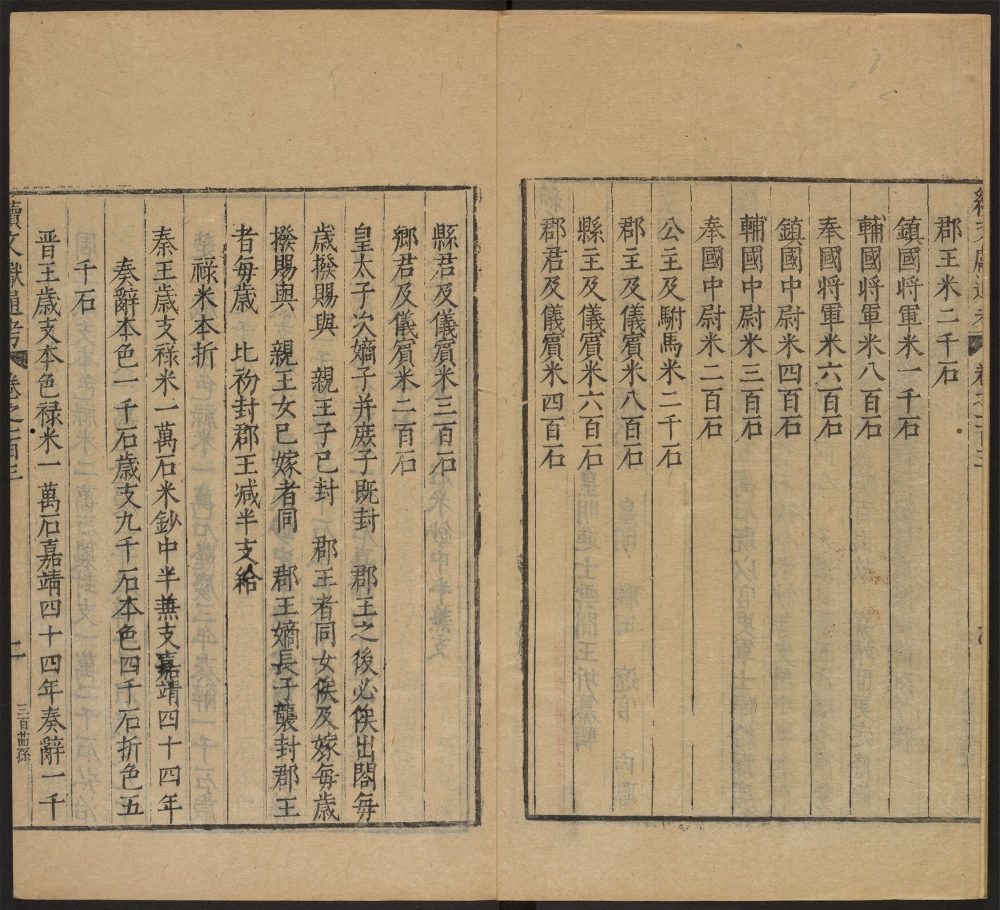 郡王米二千石
鎮國將軍米一千石
輔國將軍米八百石
奉國將軍米六百石
鎮國中尉米四百石
輔國中尉米三百石
奉國中尉米二百石
公主及駙馬米二千石
郡主及儀賓米八百石
縣主及儀賓米六百石
郡君及儀賓米四百石
縣君及儀賓米三百石
鄉君及儀賓米二百石
皇太子次嫡子并庻子既封 郡王之後必俟出閣每
歲撥賜與 親王子已封 郡王者同女俟及嫁每歲
撥賜與 親王女已嫁者同 郡王嫡長子襲封郡王
者每歲 比初封郡王减半支給
祿米本折
秦王歲支禄米一萬石米鈔中半兼支嘉靖四十四年
奏辭本色一千石歲支九千石本色四千石折色五
千石
晋王歲支本色禄米一萬石嘉靖四十四年奏辭一千
續文獻通考 卷之一百三